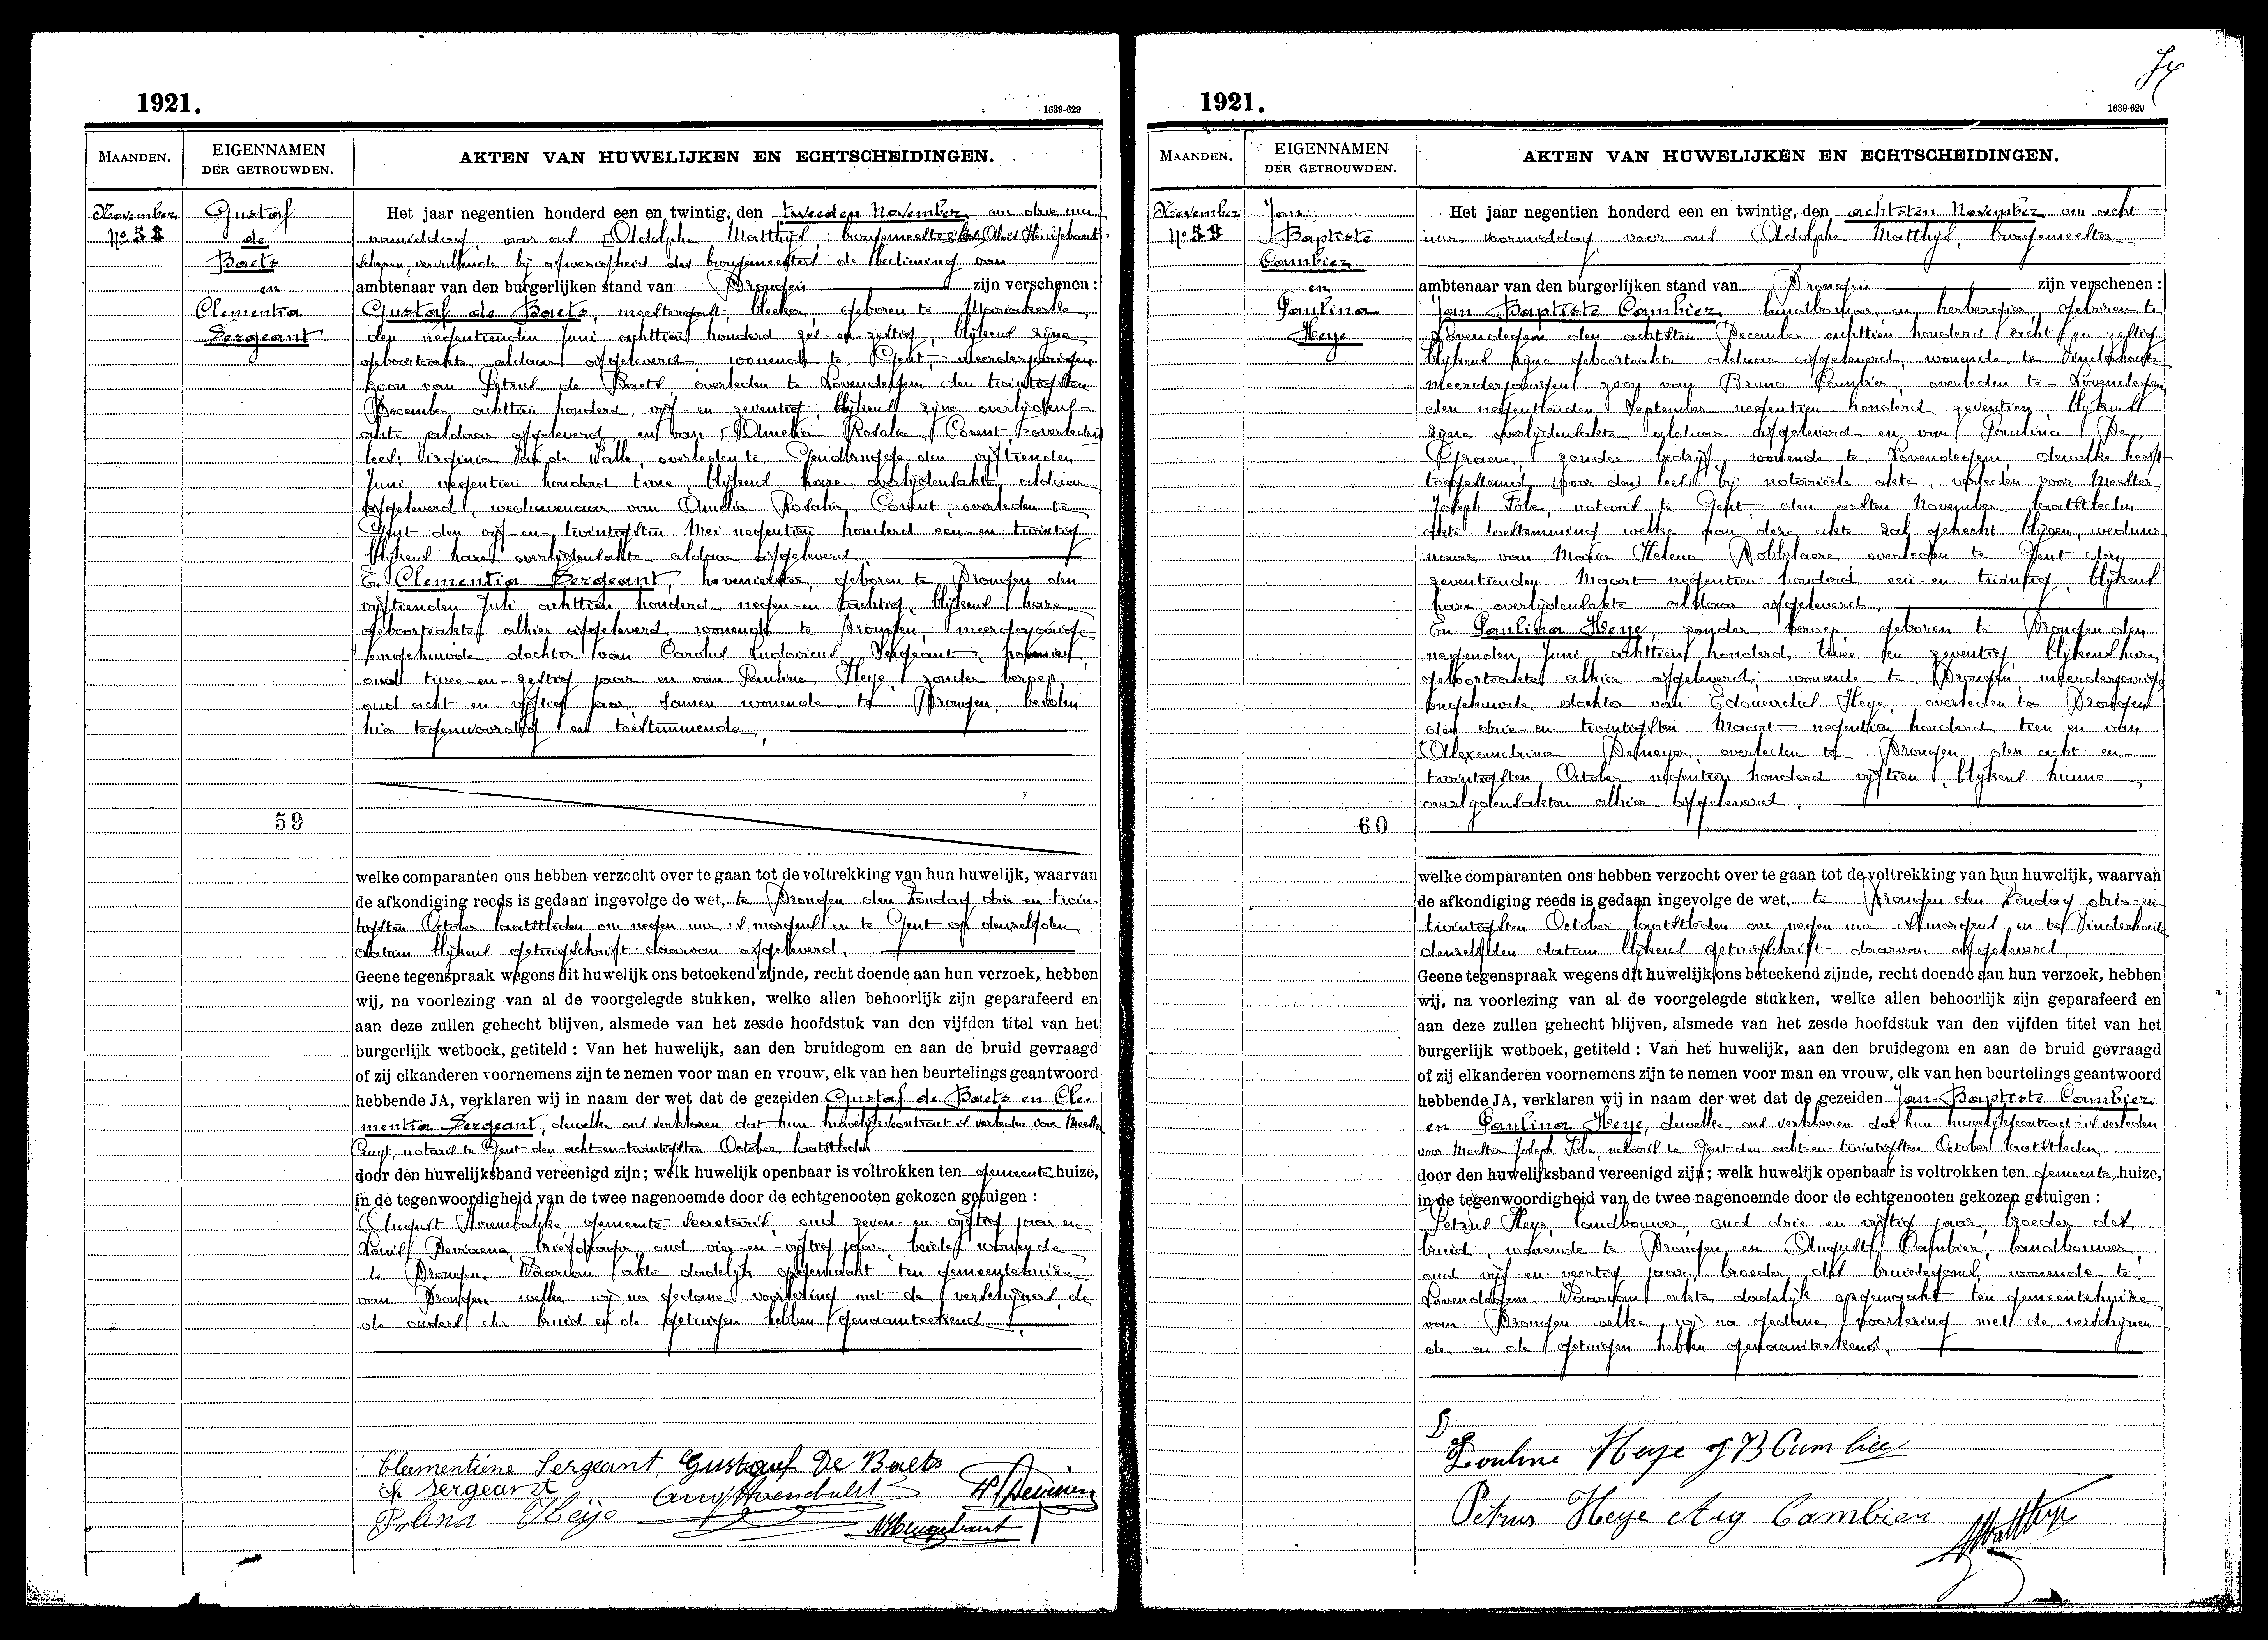 1921.
1639-629
MAANDEN.
EIGENNAMEN
DER GETROUWDEN.
AKTEN VAN HUWELIJKEN EN ECHTSCHEIDINGEN.
November
No 58
Gustaf
de
Baets
en
Clementia
Sergeant
Het jaar negentien honderd een en twintig, den tweeden November om drie uur
namiddag, voor ons Adolphe Matthys, burgemeester
Schepen, vervullende bij afwezigheid des burgemeesters de bediening van
ambtenaar van den burgerlijken stand van Drongen zijn verschenen :
Gustaf de Baets, meestergast, bleeker, geboren te Mariakerke
den negentienden Juni achttien honderd zes en zestig, blijkens zijne
geboorteakte aldaar afgeleverd, wonende te Gent, meerderjarigen
zoon van Petrus de Baets, overleden te Lovendegem den twintigsten
December achttien honderd vijf-en-zeventig, blijkens zijne overlijdens-
akte aldaar afgeleverd en van Amelia Rosalia Corent overleden
lees: Virginia Van de Walle, overleden te Gendbrugge den vijftienden
Juni negentien honderd twee, blijkens hare overlijdensakte aldaar
afgeleverd, weduwenaar van Amelia Rosalia Corent, overleden te
Gent den vijf-en-twintigsten Mei negentien honderd een-en-twintig
blijkens hare overlijdensakte aldaar afgeleverd.
En Clementia Sergeant, hovenierster, geboren te Drongen den
vijftienden Juli achttien honderd negen-en-tachtig, blijkens hare
geboorteakte alhier afgeleverd, wonende te Drongen, meerderjarige
ongehuwde dochter van Carolus Ludovicus Sergeant, hovenier,
oud twee-en-zestig jaar en van Paulina Heye, zonder beroep,
oud acht-en-vijftig jaar, samen wonende te Drongen, beiden
hier tegenwoordig en toestemmende.
59
welke comparanten ons hebben verzocht over te gaan tot de voltrekking van hun huwelijk, waarvan
de afkondiging reeds is gedaan ingevolge de wet, te Drongen den Zondag drie-en-twin-
tigsten October laatstleden om negen uur 's morgens en te Gent op denzelfden
datum blijkens getuigschrift daarvan afgeleverd.
Geene tegenspraak wegens dit huwelijk ons beteekend zijnde, recht doende aan hun verzoek, hebben
wij, na voorlezing van al de voorgelegde stukken, welke allen behoorlijk zijn geparafeerd en
aan deze zullen gehecht blijven, alsmede van het zesde hoofdstuk van den vijfden titel van het
burgerlijk wetboek, getiteld : Van het huwelijk, aan den bruidegom en aan de bruid gevraagd
of zij elkanderen voornemens zijn te nemen voor man en vrouw, elk van hen beurtelings geantwoord
hebbende JA, verklaren wij in naam der wet dat de gezeiden Gustaf de Baets en Cle-
mentia Sergeant, dewelke ons verklaren dat hun huwelijkscontract is verleden voor Meester
notaris te Gent den acht-en-twintigsten October laatstleden
door den huwelijksband vereenigd zijn; welk huwelijk openbaar is voltrokken ten gemeente huize,
in de tegenwoordigheid van de twee nagenoemde door de echtgenooten gekozen getuigen :
August Haenebalcke, gemeente secretaris, oud zeven-en-vijftig jaar en
Louis Deviaene, briefdrager, oud vier-en-vijftig jaar, beide wonende
te Drongen. Waarvan akte dadelijk opgemaakt ten gemeentehuize
van Drongen welke wij na gedane voorlezing met de verschijners, de
de ouders der bruid en de getuigen hebben genaamteekend.
Clementiene Sergeant, Gustaaf De Baets
Sergeant
Polina Heije
1921.
1639-629
MAANDEN.
EIGENNAMEN
DER GETROUWDEN.
AKTEN VAN HUWELIJKEN EN ECHTSCHEIDINGEN.
November
No 59
Jan
Baptiste
Cambier
en
Paulina
Heye
Het jaar negentien honderd een en twintig, den achtsten November om acht
uur voormiddag voor ons Adolphe Matthys, burgemeester
ambtenaar van den burgerlijken stand van Drongen zijn verschenen :
Jan Baptiste Cambier, landbouwer en herbergier, geboren te
Lovendegem den achtsten December achttien honderd acht en zestig
blijkens zijne geboorteakte aldaar afgeleverd, wonende te Vinderhoute
meerderjarigen zoon van Bruno Cambier, overleden te Lovendegem
den negentienden September negentien honderd zeventien, blijkens
zijne overlijdensakte aldaar afgeleverd en van Paulina De
Graeve, zonder bedrijf, wonende te Lovendegem, dewelke heeft
toegestemd (voor den) lees: bij notarieele akte, verleden voor Meester
Joseph Fobe, notaris te Gent, den eersten November laatstleden
akte toestemming welke aan deze akte zal gehecht blijven, weduwe
naar van Maria Helena Dobbelaere overleden te Gent den
zeventienden Maart negentien honderd een en twintig, blijkens
hare overlijdensakte aldaar afgeleverd.
En Paulina Heye, zonder beroep, geboren te Drongen den
negenden Juni achttien honderd twee en zeventig, blijkens hare
geboorteakte alhier afgeleverd, wonende te Drongen, meerderjarige
ongehuwde dochter van Edouardus Heye, overleden te Drongen
den drie-en-twintigsten Maart negentien honderd tien en van
Alexandrina Demeyer overleden te Drongen den acht-en-
twintigsten October negentien honderd vijftien, blijkens hunne
overlijdensakten alhier afgeleverd.
60
welke comparanten ons hebben verzocht over te gaan tot de voltrekking van hun huwelijk, waarvan
de afkondiging reeds is gedaan ingevolge de wet, te Drongen den Zondag drie-en-
twintigsten October laatstleden om negen uur 's morgens en te Vinderhoute
denzelfden datum blijkens getuigschrift daarvan afgeleverd.
Geene tegenspraak wegens dit huwelijk ons beteekend zijnde, recht doende aan hun verzoek, hebben
wij, na voorlezing van al de voorgelegde stukken, welke allen behoorlijk zijn geparafeerd en
aan deze zullen gehecht blijven, alsmede van het zesde hoofdstuk van den vijfden titel van het
burgerlijk wetboek, getiteld : Van het huwelijk, aan den bruidegom en aan de bruid gevraagd
of zij elkanderen voornemens zijn te nemen voor man en vrouw, elk van hen beurtelings geantwoord
hebbende JA, verklaren wij in naam der wet dat de gezeiden Jan-Baptiste Cambier
en Paulina Heye, dewelke ons verklaren dat hun huwelijkscontract is verleden
voor Meester Joseph Fobe, notaris te Gent den acht-en-twintigsten October laatstleden
door den huwelijksband vereenigd zijn; welk huwelijk openbaar is voltrokken ten gemeente huize,
in de tegenwoordigheid van de twee nagenoemde door de echtgenooten gekozen getuigen :
Petrus Heye, landbouwer, oud drie en vijftig jaar, broeder der
bruid, wonende te Drongen en August Cambier, landbouwer,
oud vijf-en-veertig jaar, broeder des bruidegoms, wonende te
Lovendegem. Waarvan akte dadelijk opgemaakt ten gemeentehuize
van Drongen welke wij na gedane voorlezing met de verschijnen
de en de getuigen hebben genaamteekend.
Pouline Heye J B Cambier
Petrus Heye Aug Cambier